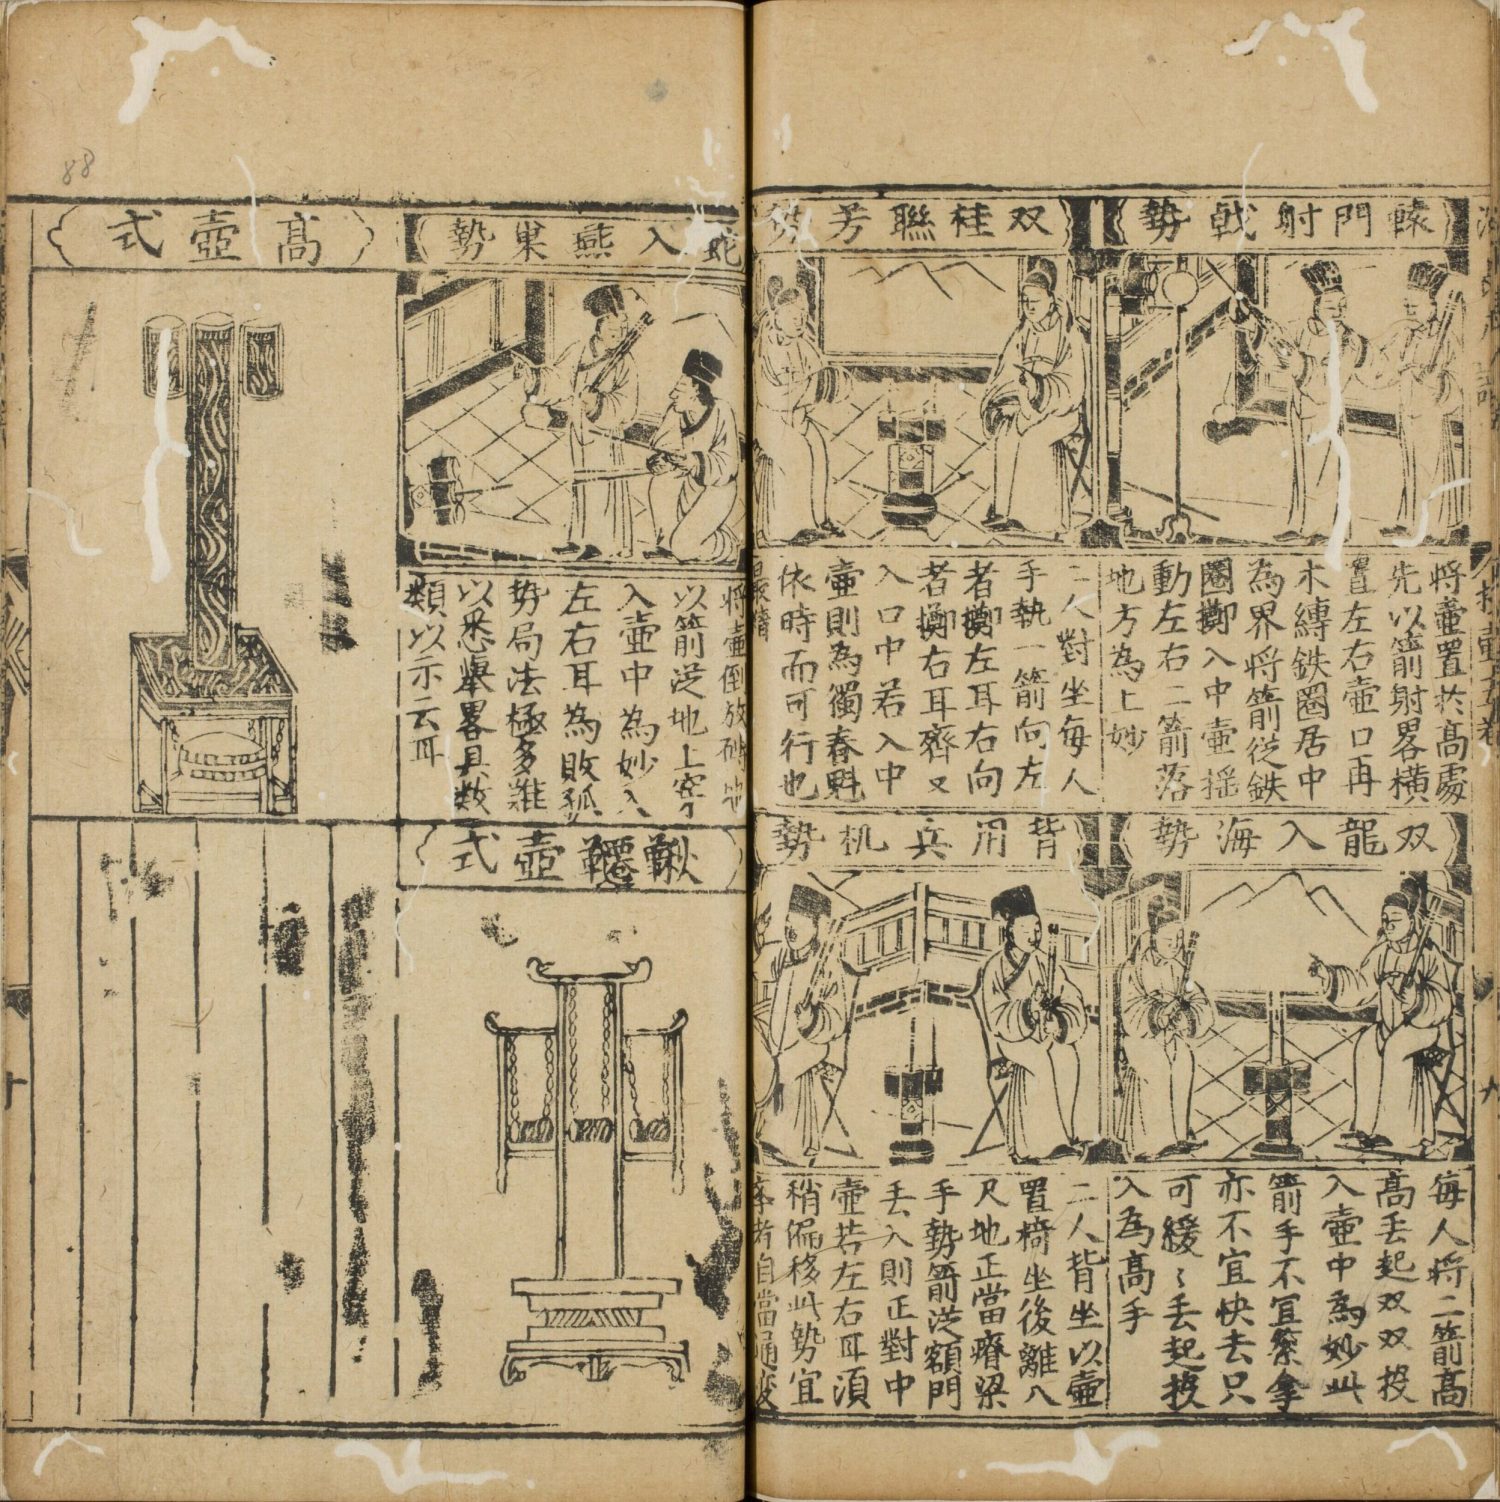 轅門射戟勢
將壺置扵高處
先以箭射畧橫
置左右壺口再
木縳鉄圈居中
為界將箭従鉄
圈擲入中壺揺
動左右二箭落
地方為上妙
双桂聯芳勢
二人對坐每人
手執一箭向左
者擲左耳右向
者擲右耳齊又
入口中若入中
壺則為獨春魁
依時而可行也
双龍入海勢
每人将二箭高
高丟起双双投
入壺中為妙此
箭手不宜緊拿
亦不宜快去只
可緩〻丟起投
入為高手
背用兵机勢
二人背坐以壺
置椅坐後離八
尺地正當瘠梁
手勢箭従額門
丢入則正對中
壺若左右耳湏
稍偏移此勢宜
蛇入燕巢勢
將壺倒放磚地
以箭従地上穿
入壺中為妙入
左右耳為敗孤
势局法極多難
以悉舉畧具数
類以示云耳
高壺式
鞦韆壺式
十
九
88